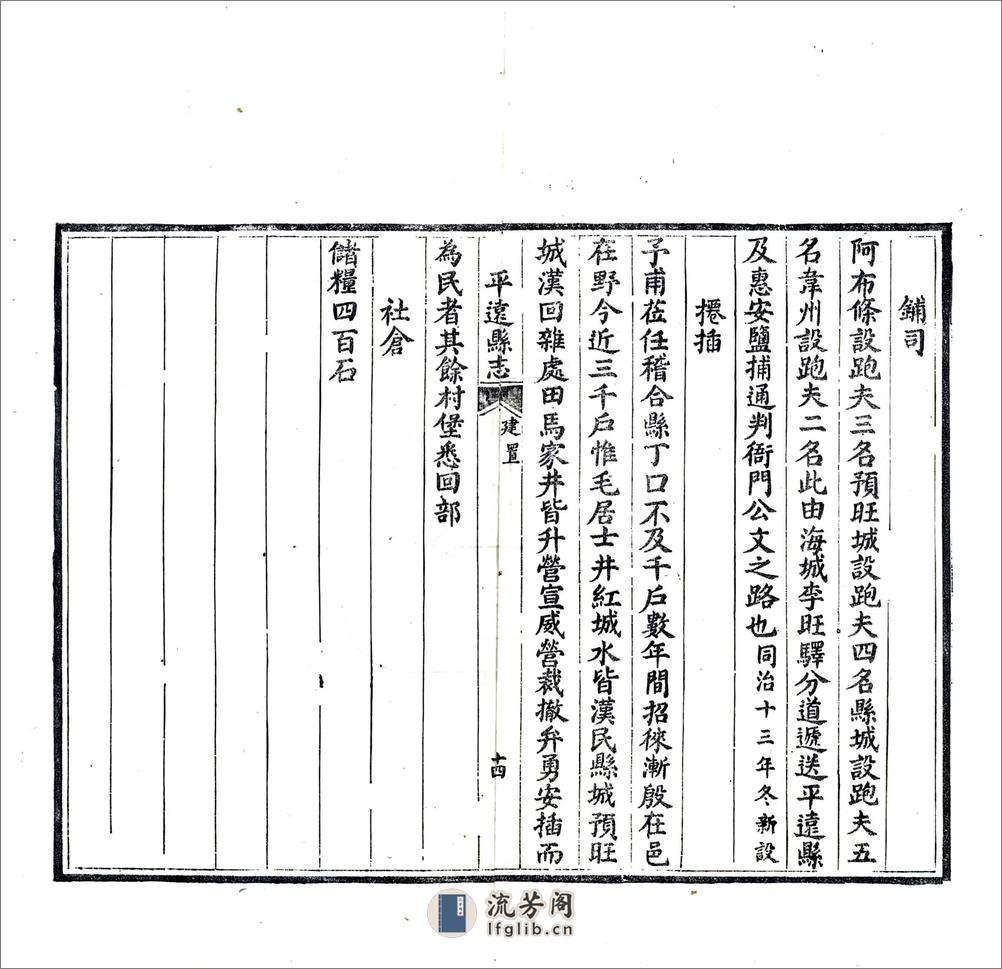 鋪司
阿布條設跑夫三名預旺城設跑夫四名縣城設跑夫五
名韋州設跑夫二名此由海城李旺驛分道遞送平遠縣
及惠安鹽捕通判衙門公文之路也同治十三年冬新設
遷插
予甫蒞任稽合縣丁口不及千戶數年間招徠漸殷在邑
在野今近三千戶惟毛居士井紅城水皆漢民縣城預旺
城漢回雜處田馬家井皆升營宣威營裁撤弁勇安插而
平遠縣志
建置
十四
為民者其餘村堡悉回部
社倉
儲糧四百石
流芳阁
lfglib.cn